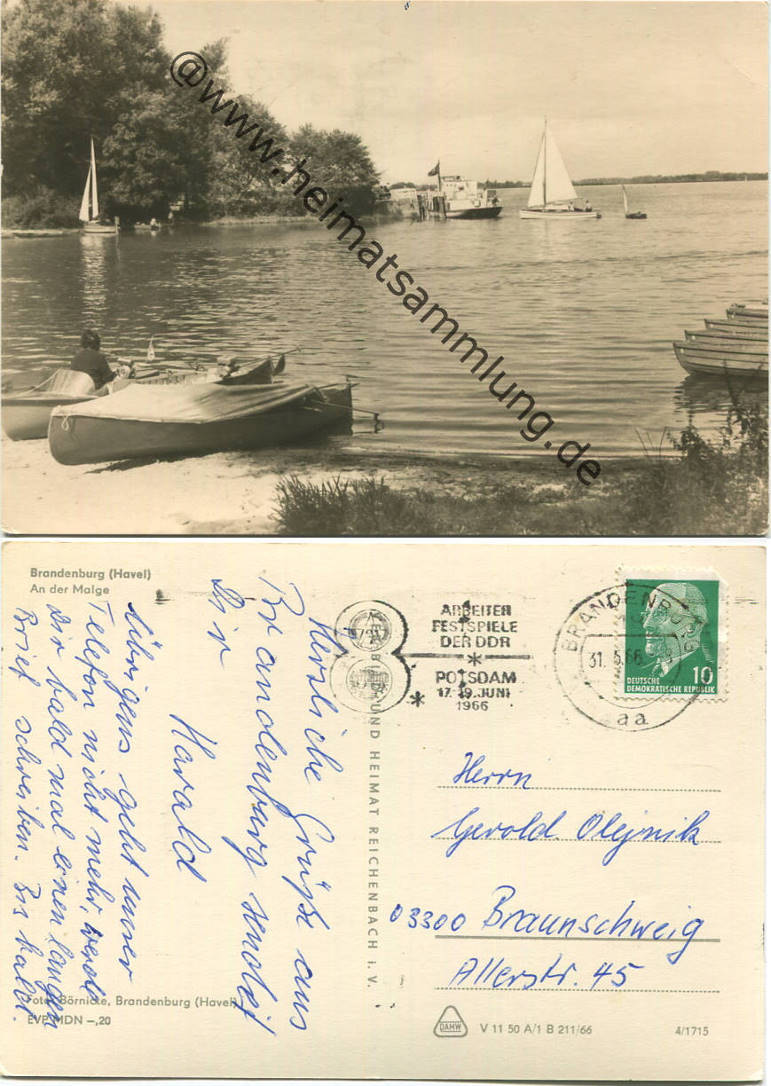 @www.heimatsammlung.de
Brandenburg (Havel)
An der Malge
Herzliche Grüße aus
Brandenburg sendet
Dir
Harald
Übrigens geht unser
Telefon nicht mehr, werde
Dir bald mal einen langen
Brief schreiben. Bis bald.
Foto: Börnicke, Brandenburg (Havel)
EVP MDN –,20
BILD UND HEIMAT REICHENBACH i. V.
ARBEITER
FESTSPIELE
DER DDR
POTSDAM
17.-19. JUNI
1966
BRANDENBURG
31.5.66
aa
10
DEUTSCHE
DEMOKRATISCHE REPUBLIK
Herrn
Gerold Olejnik
03300 Braunschweig
Allerstr. 45
DAMW
V 11 50 A/1 B 211/66
4/1715